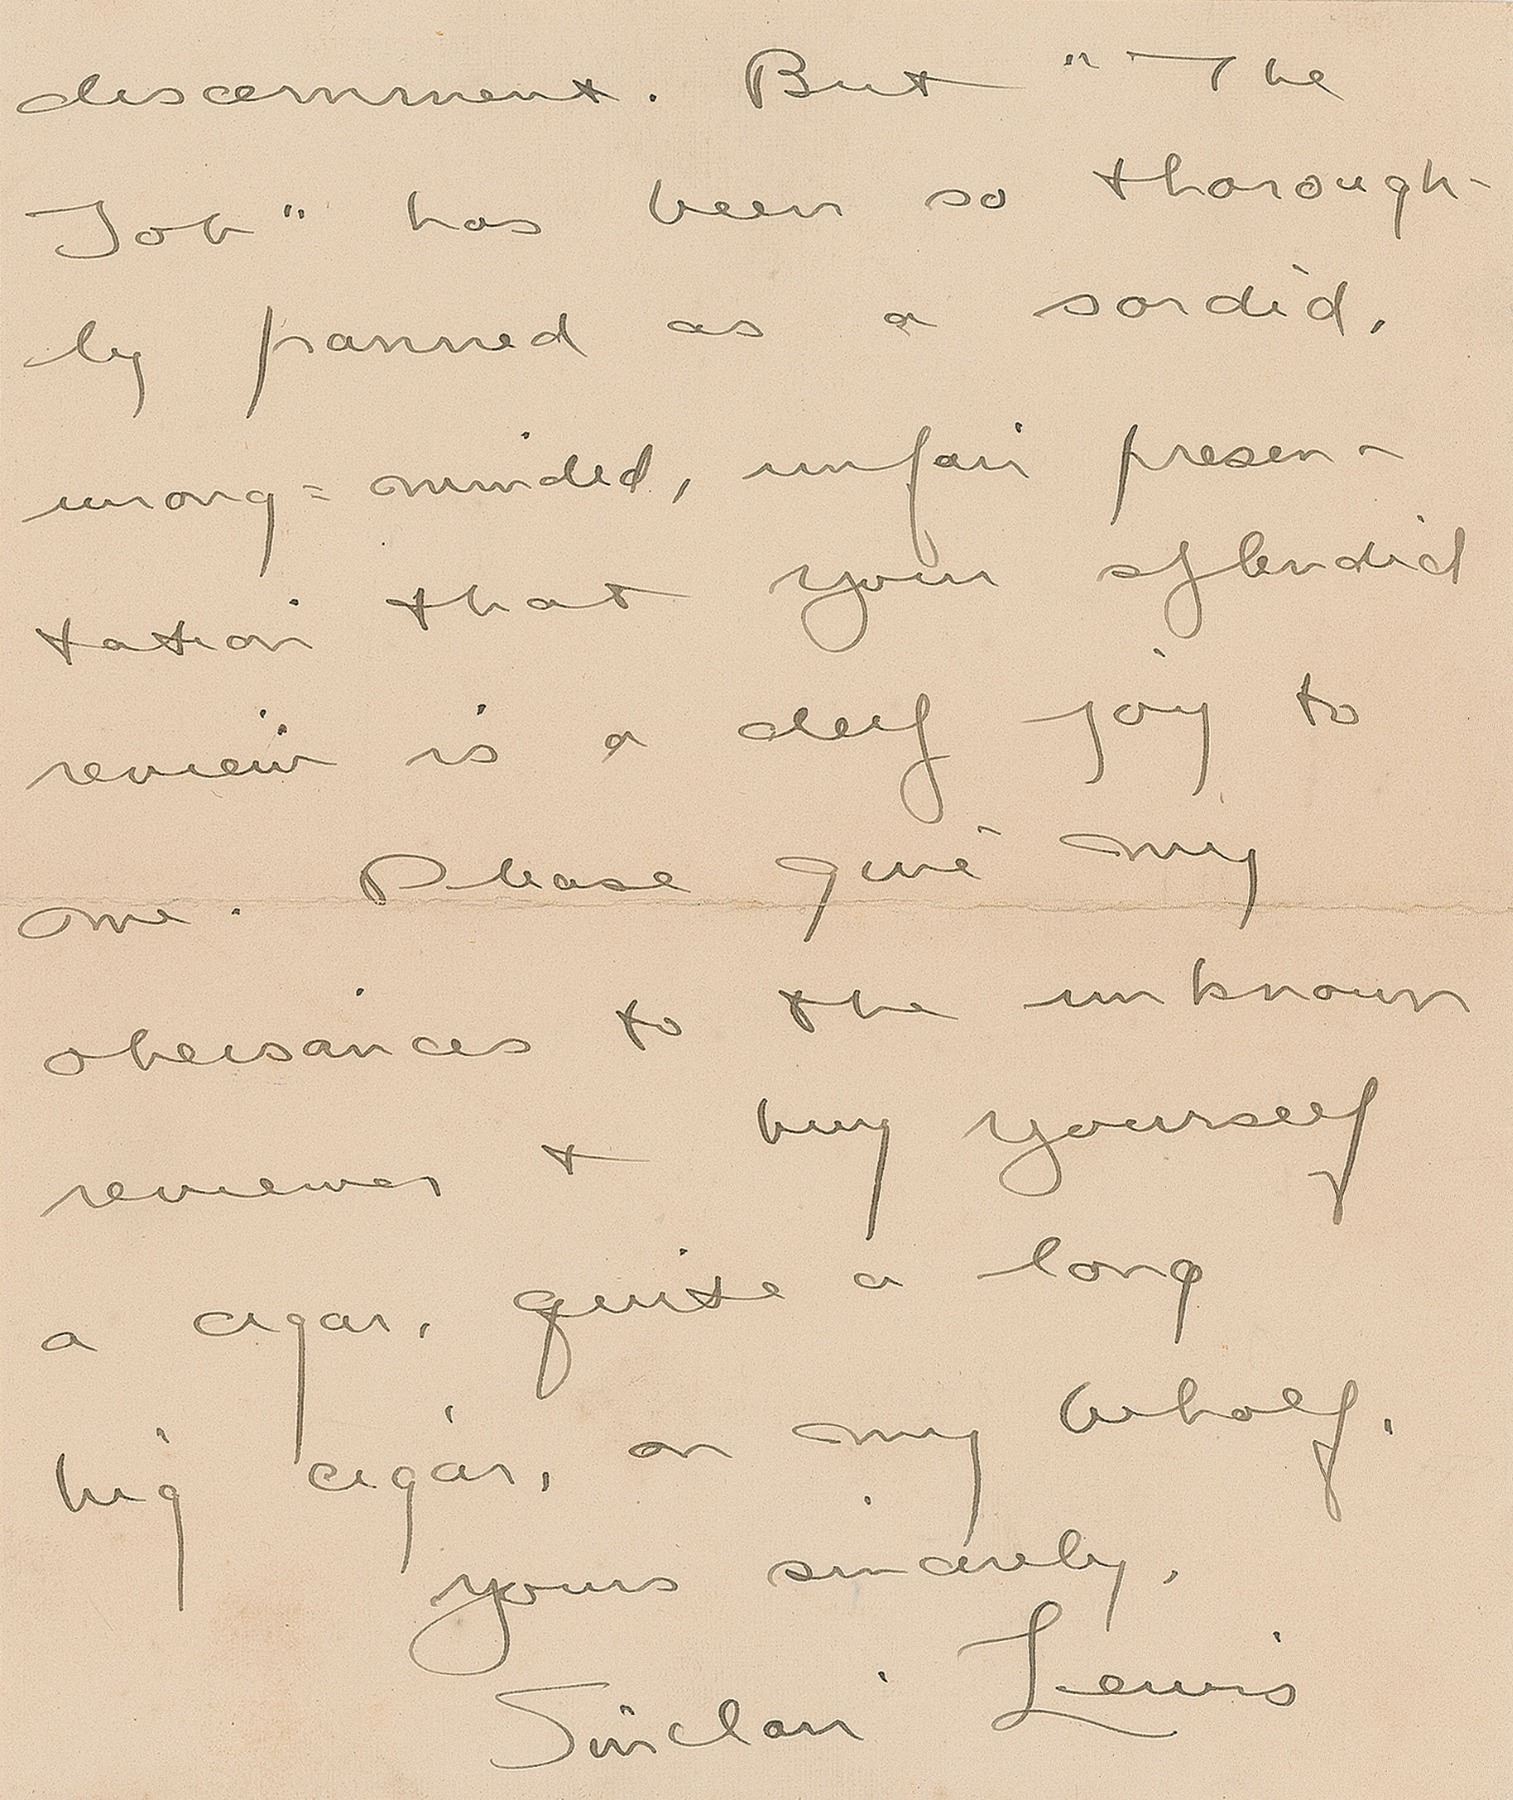 discernment. But "The
Job" has been so thorough-
ly panned as a sordid,
wrong=minded, unfair presen-
tation that your splendid
review is a deep joy to
me. Please give my
obeisances to the unknown
reviewer + buy yourself
a cigar, quite a long
big cigar, on my behalf.
yours sincerely,
Sinclair Lewis